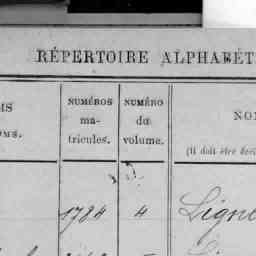 RÉPERTOIRE ALPHABÉT
MS
OMS.
NUMÉROS
ma-
tricules.
NUMÉRO
du
volume.
NO
(Il doit être
1784 4 Ligne